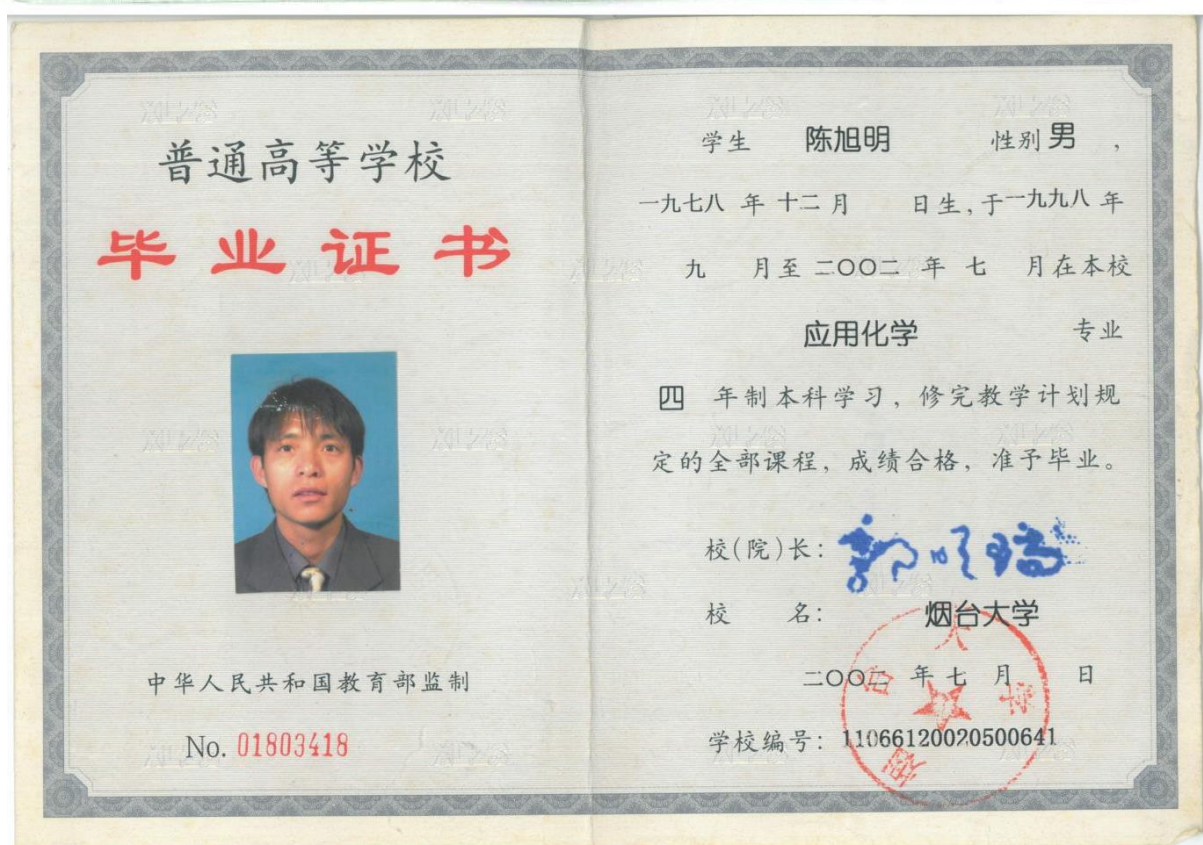 普通高等学校
毕业证书
中华人民共和国教育部监制
No. 01803418
学生 陈旭明 性别 男 ,
一九七八 年 十二 月 日生, 于 一九九八 年
九 月至 二〇〇二 年 七 月在本校
应用化学 专业
四 年制本科学习, 修完教学计划规
定的全部课程, 成绩合格, 准予毕业。
校(院)长:
校 名: 烟台大学
二〇〇二 年 七 月 日
学校编号: 11066120020500641
烟台大学